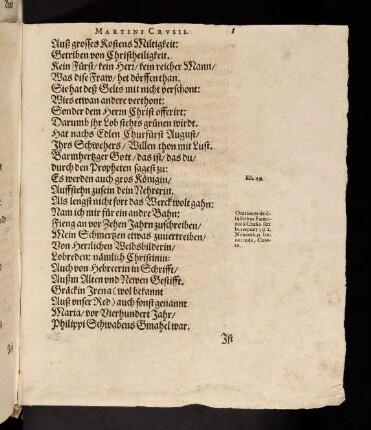 MARTINI CRVSII. 1
Auß grosses Kostens Miltigkeit:
Getriben von Christheiligkeit.
Kein Fürst/ kein Herr/ kein reicher Mann/
Was dise Fraw/ het dörffen than.
Sie hat deß Gelts mit nicht verschont:
Wies etwan andere verthont:
Sonder dem Herrn Christ offerirt:
Darumb ihr Lob stehts grünen wirdt.
Hat nachs Edlen Churfürst August/
Ihrs Schwehers/ Willen thon mit Lust.
Barmhertzger Gott/ das ist/ das du/
durch den Propheten sagest zu:
Es werden auch gros Königin/
Esa. 49.
Auffstehn zusein dein Nehrerin.
Als lengst nicht fort das Werck wolt gahn:
Nam ich mir für ein andre Bahn:
Fieng an vor Zehen Jahrn zuschreiben/
Mein Schmerzen etwas zuuertreiben/
Von Herrlichen Weibsbilderin/
Lobreden: nämlich Christinin:
Auch von Hebreerin in Schrifft/
Außm Alten vnd Newen Gestifft.
Gräckin Irena (wol bekannt
Auß vnser Red) auch sonst genannt
Maria/ vor Vierhundert Jahr/
Philippi Schwabens Gmahel war.
Ist